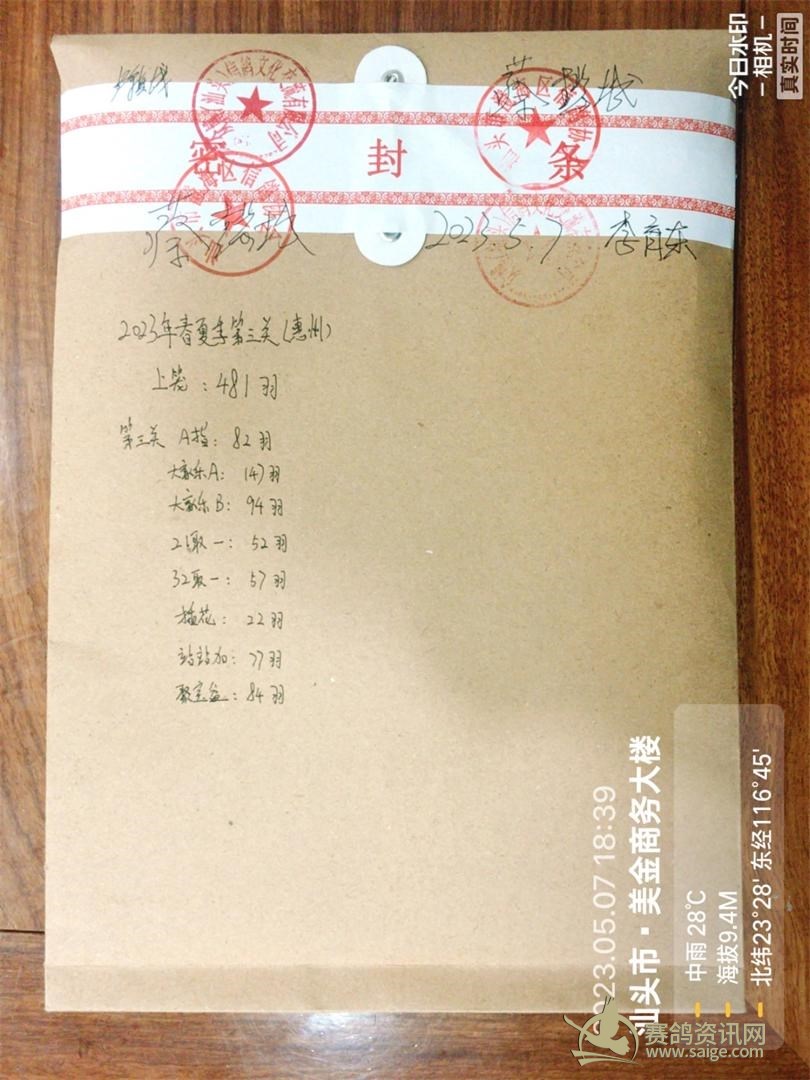 密 封 条
2023.5.7 李育东
2023年春夏季第三关(惠州)
上笼:481羽
第三关 A指:82羽
大家乐A:147羽
大家乐B:94羽
21取一:52羽
32取一:57羽
插花:22羽
站站加:77羽
聚宝盆:84羽
今日水印
-相机-
真实时间
2023.05.07 18:39
汕头市·美金商务大楼
中雨 28℃
海拔9.4M
北纬23°28′ 东经116°45′
赛鸽资讯网
www.saige.com